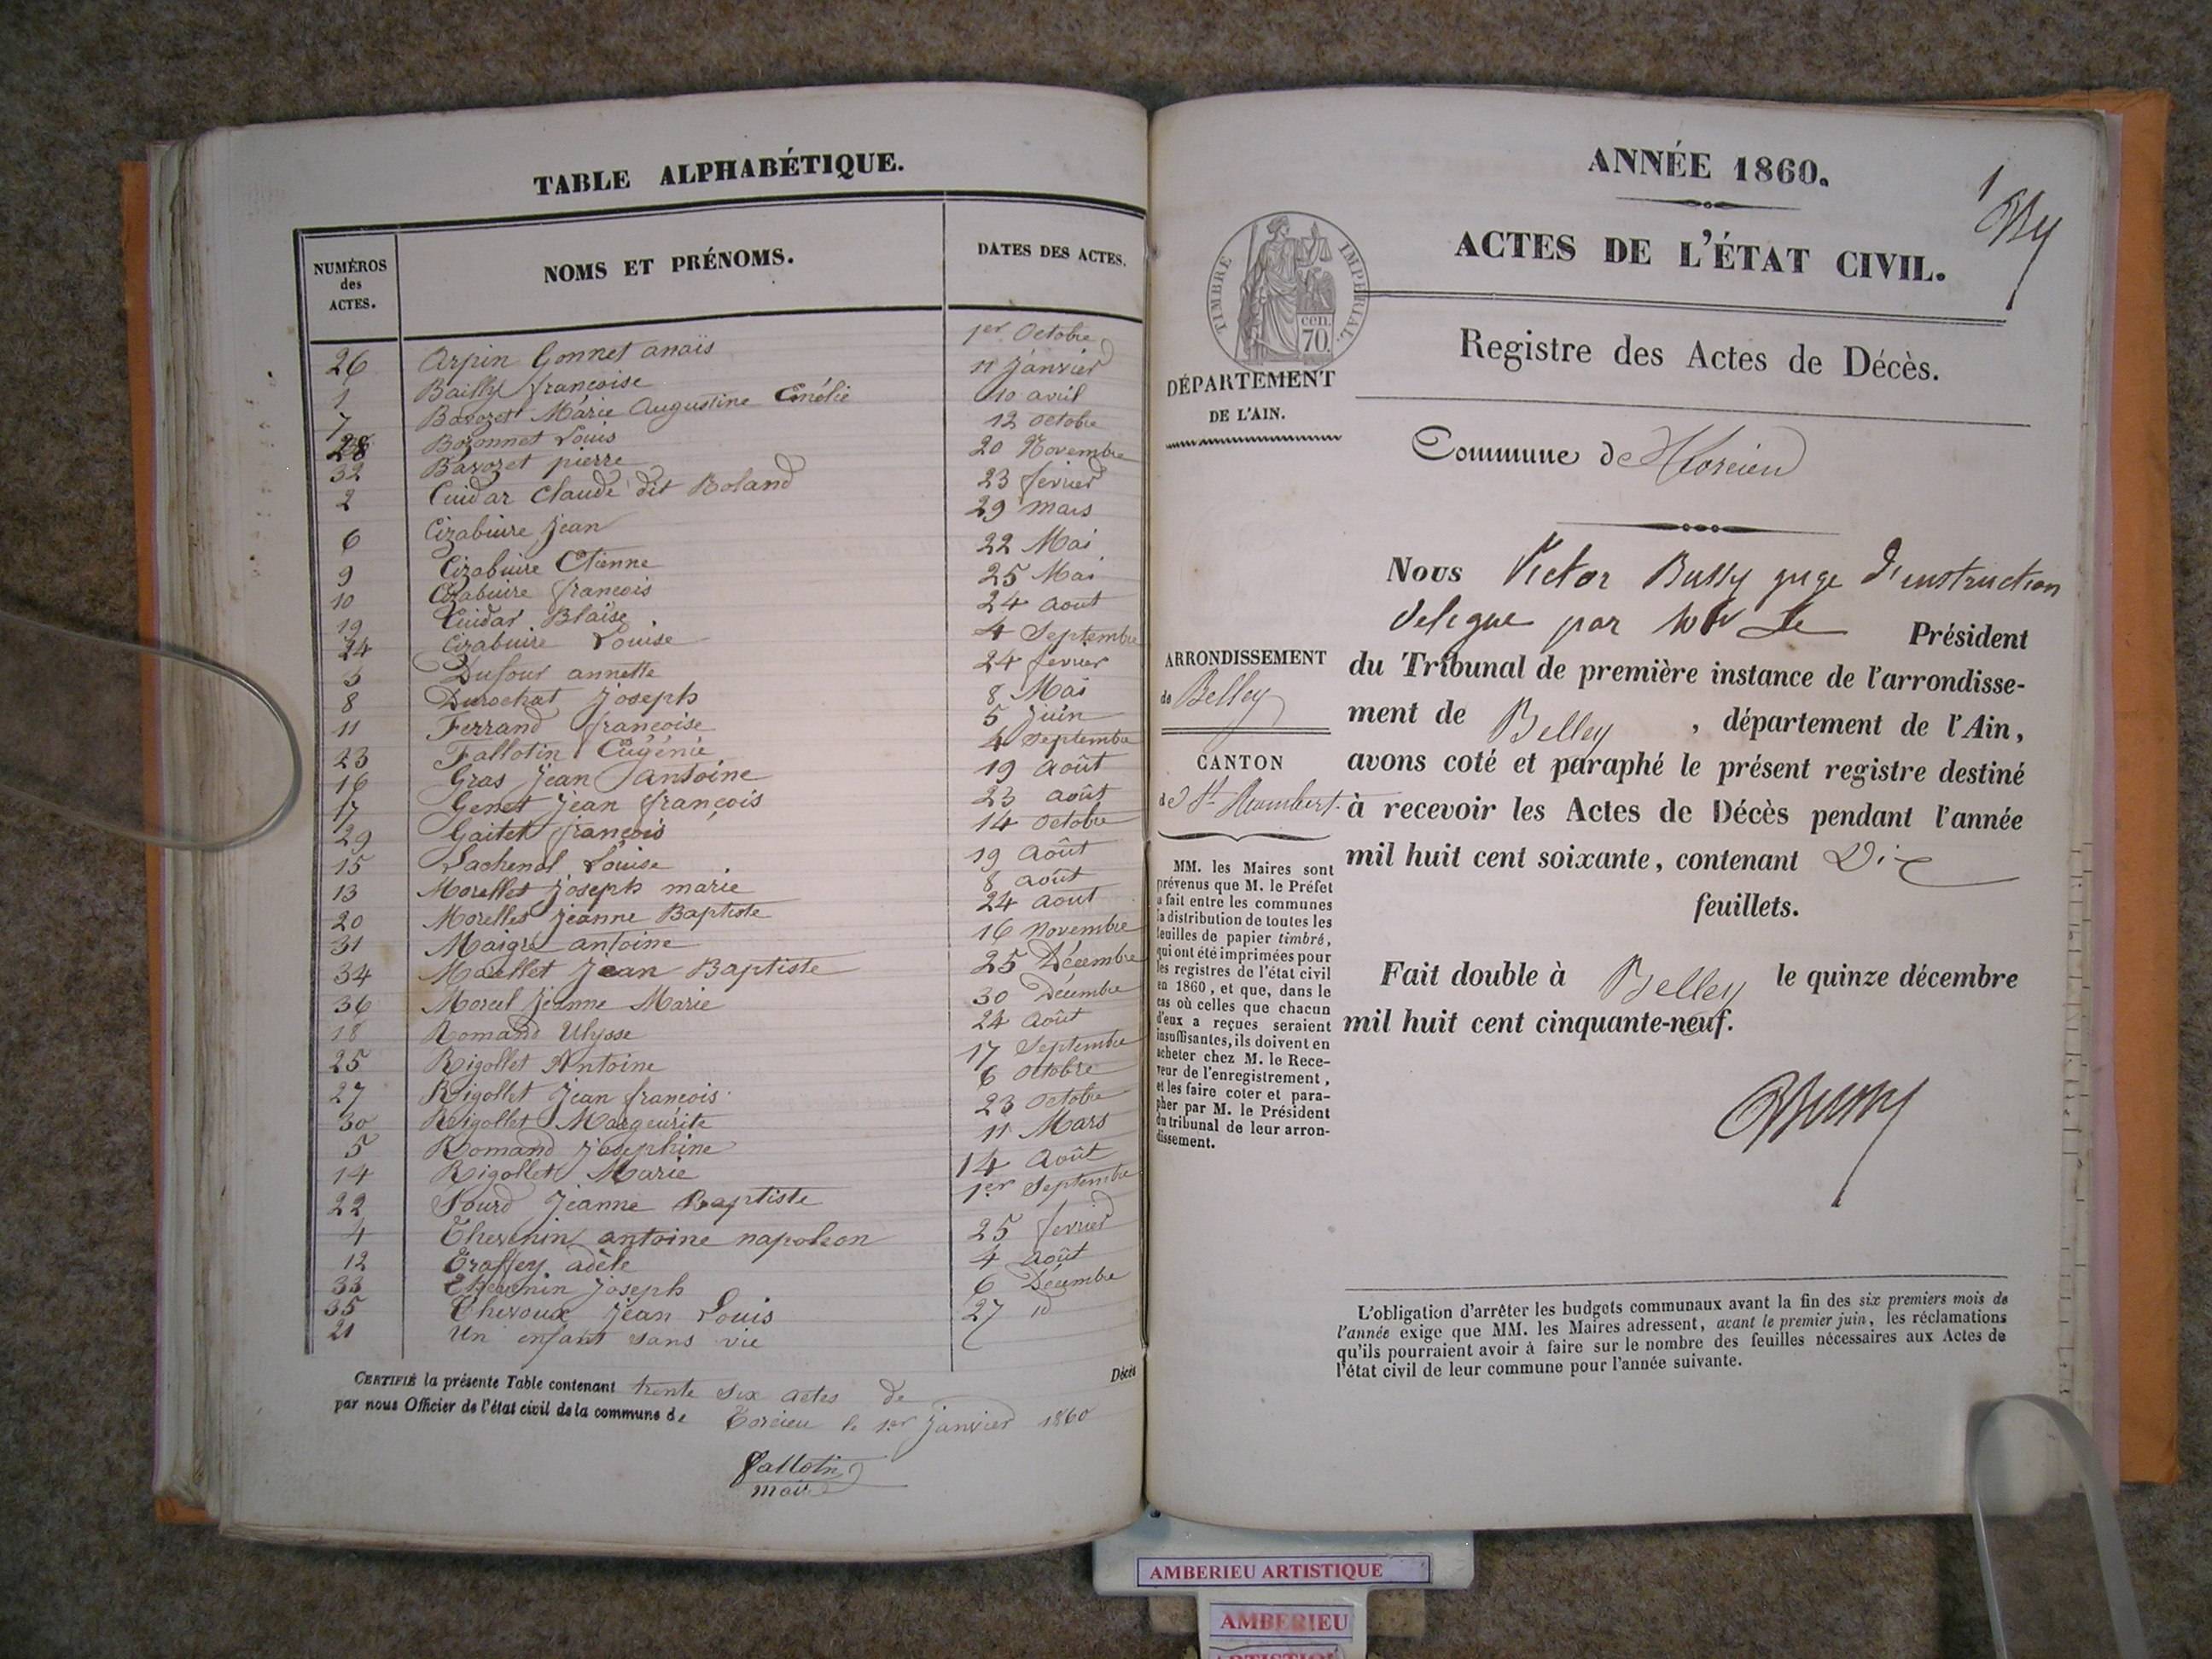 TABLE ALPHABÉTIQUE.
NUMÉROS des ACTES. NOMS ET PRÉNOMS. DATES DES ACTES.
26 Arpin Gonnet anaïs 1er Octobre
1 Bailly françoise 11 janvier
7 Bavozet Marie Augustine Emélie 10 avril
28 Bozonnet Louis 12 octobre
32 Bavozet pierre 20 Novembre
2 Cuidar Claude dit Boland 23 fevrier
6 Cizabuire Jean 29 mars
9 Cizabuire Etienne 22 Mai
10 Cizabuire françois 25 Mai
19 Cuidar Blaise 24 aout
24 Cizabuire Louise 4 Septembre
3 Dufour annette 24 fevrier
8 Durochat Joseph 8 Mai
11 Ferrand françoise 5 juin
23 Fallotin Eugénie 4 Septembre
16 Gras Jean Antoine 19 Août
17 Genet Jean françois 23 août
29 Gaitet françois 14 octobre
15 Lachenal Louise 19 Août
13 Morellet Joseph marie 8 août
20 Morellet Jeanne Baptiste 24 aout
31 Maigre antoine 16 novembre
34 Morellet Jean Baptiste 25 Décembre
36 Morel Jeanne Marie 30 Décembre
18 Romand Ulysse 24 Août
25 Rigollet Antoine 17 Septembre
27 Rigollet Jean françois 6 Octobre
30 Rigollet Margeurite 23 Octobre
5 Romand Josephine 11 Mars
14 Rigollet Marie 14 Août
22 Sourd Jeanne Baptiste 1er Septembre
4 Thevenin antoine napoleon 25 fevrier
12 Traffey adèle 4 Août
33 Thevenin Joseph 6 Décembre
35 Chevoux Jean Louis 27 id
21 Un enfant sans vie
CERTIFIÉ la présente Table contenant trente six actes de Décès
par nous Officier de l'état civil de la commune de Torcieu le 1er Janvier 1860
Fallotin
maire
ANNÉE 1860.
1
ACTES DE L'ÉTAT CIVIL.
TIMBRE IMPÉRIAL.
cen.
70.
Registre des Actes de Décès.
DÉPARTEMENT
DE L'AIN.
Commune de Torcieu
Nous Victor Bussy juge d'instruction
délégue par Mr Le Président
du Tribunal de première instance de l'arrondisse-
ment de Belley, département de l'Ain,
avons coté et paraphé le présent registre destiné
à recevoir les Actes de Décès pendant l'année
mil huit cent soixante, contenant Dix
feuillets.
Fait double à Belley le quinze décembre
mil huit cent cinquante-neuf.
ARRONDISSEMENT
de Belley
CANTON
de St Rambert.
MM. les Maires sont
prévenus que M. le Préfet
a fait entre les communes
la distribution de toutes les
feuilles de papier timbré,
qui ont été imprimées pour
les registres de l'état civil
en 1860, et que, dans le
cas où celles que chacun
d'eux a reçues seraient
insuffisantes, ils doivent en
acheter chez M. le Rece-
veur de l'enregistrement,
et les faire coter et para-
pher par M. le Président
du tribunal de leur arron-
dissement.
L'obligation d'arrêter les budgets communaux avant la fin des six premiers mois de
l'année exige que MM. les Maires adressent, avant le premier juin, les réclamations
qu'ils pourraient avoir à faire sur le nombre des feuilles nécessaires aux Actes de
l'état civil de leur commune pour l'année suivante.
AMBERIEU ARTISTIQUE
AMBERIEU
ARTISTIQUE